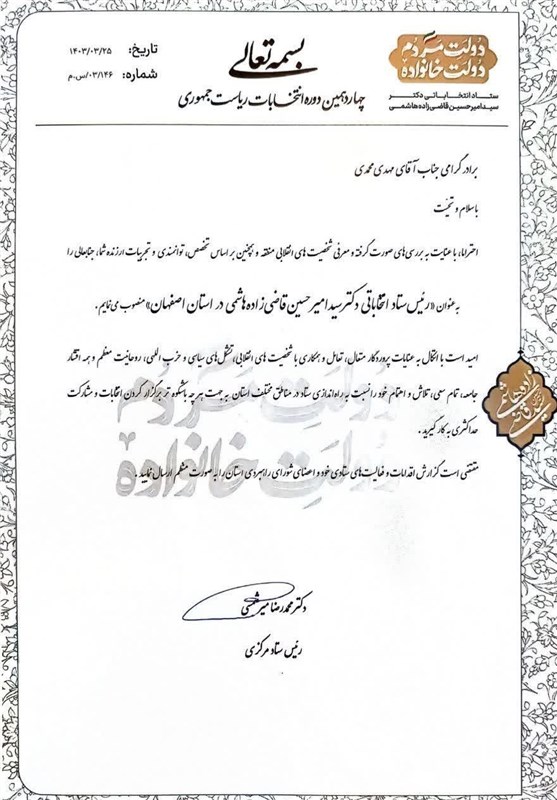 دولت مردم
دولت خانواده
ستاد انتخاباتی دکتر
سید امیرحسین قاضی‌زاده هاشمی
بسمه تعالی
چهاردهمین دوره انتخابات ریاست جمهوری
تاریخ: ۱۴۰۳/۰۳/۲۵
شماره: ۰۳/۱۴۶/س.م
برادر گرامی جناب آقای مهدی محمدی
با سلام و تحیت
احتراما، با عنایت به بررسی‌های صورت گرفته و معرفی شخصیت های انقلابی منطقه و همچنین بر اساس تخصص، توانمندی و تجربیات ارزنده شما، جنابعالی را
به عنوان «رئیس ستاد انتخاباتی دکتر سید امیر حسین قاضی زاده هاشمی در استان اصفهان» منصوب می‌نمایم.
امید است با اتکال به عنایات پروردگار متعال، تعامل و همکاری با شخصیت های انقلابی، تشکل‌های سیاسی و حزب اللهی، روحانیت معظم و همه اقشار
جامعه، تمام سعی، تلاش و اهتمام خود را نسبت به راه‌اندازی ستاد در مناطق مختلف استان به جهت هر چه باشکوه تر برگزار کردن انتخابات و مشارکت
حداکثری به کار گیرید.
مقتضی است گزارش اقدامات و فعالیت‌های ستادی خود و اعضای شورای راهبردی استان را به صورت منظم ارسال نمایید.
دولت مردم
دولت خانواده
دکتر محمدرضا میرشمسی
رئیس ستاد مرکزی